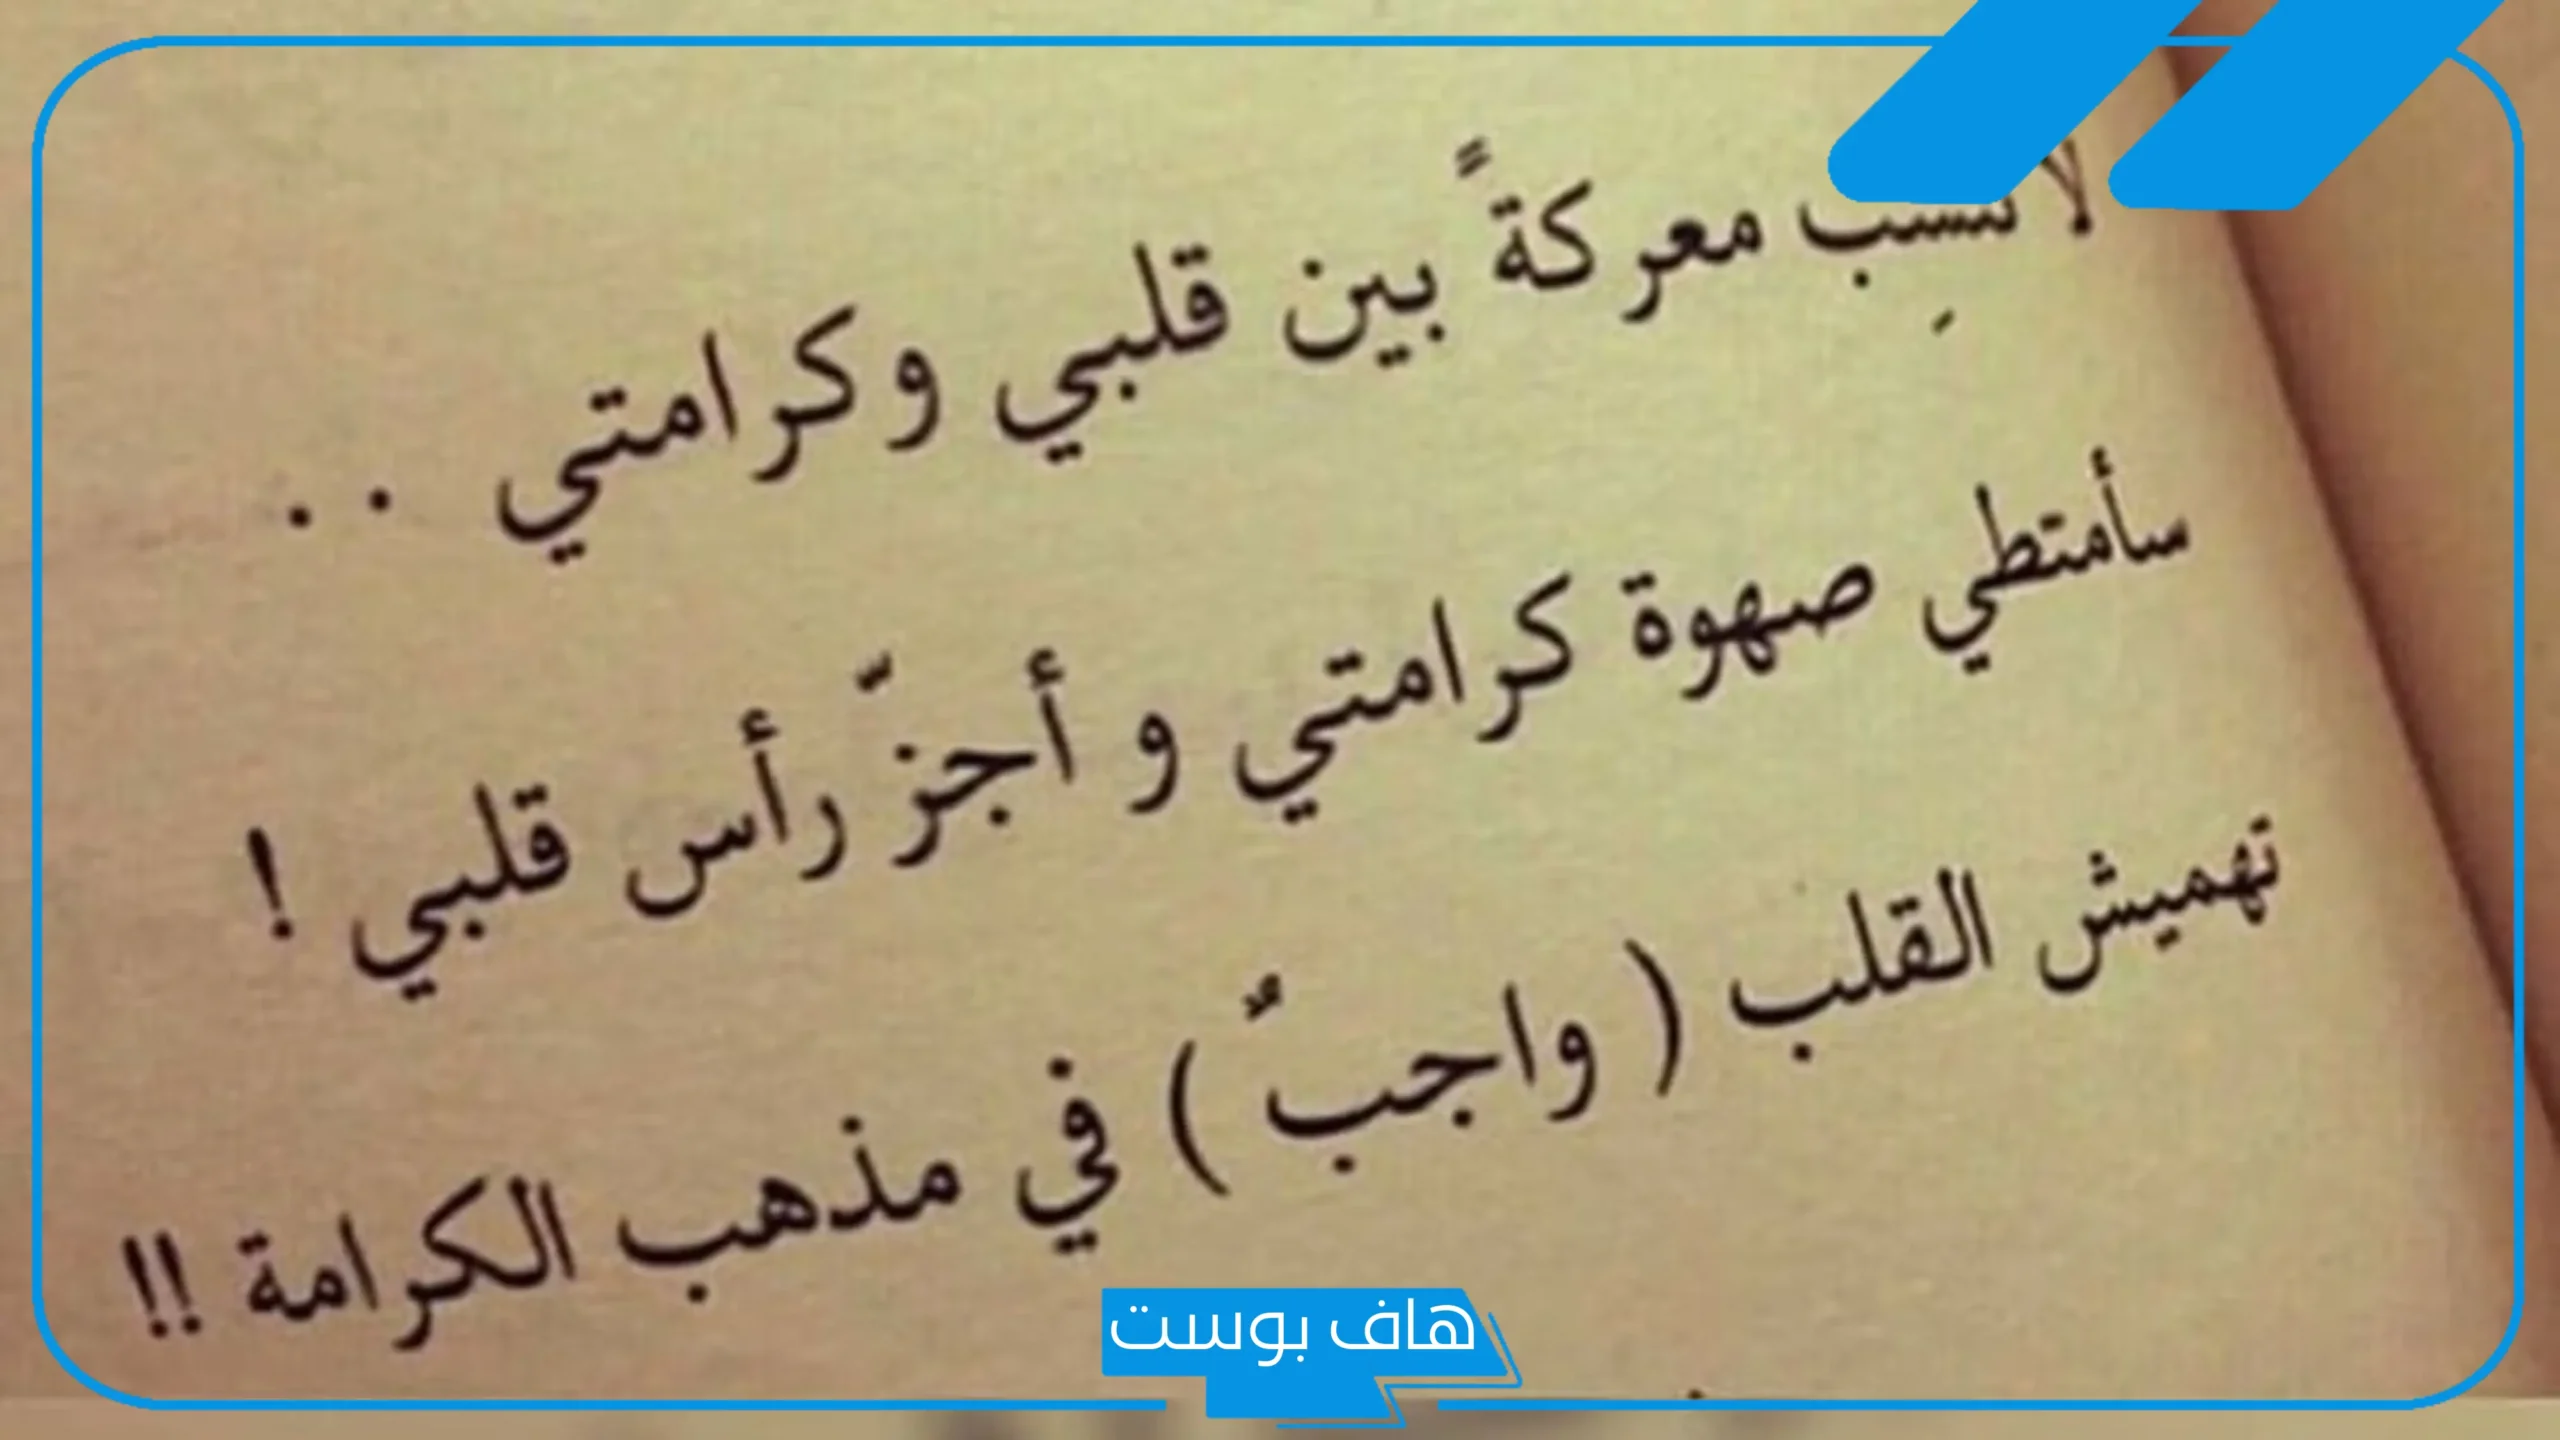 لا تشِب معركةً بين قلبي وكرامتي ..
سأمتطي صهوة كرامتي و أجزّ رأس قلبي !
تهميش القلب ( واجبٌ ) في مذهب الكرامة !!
هاف بوست